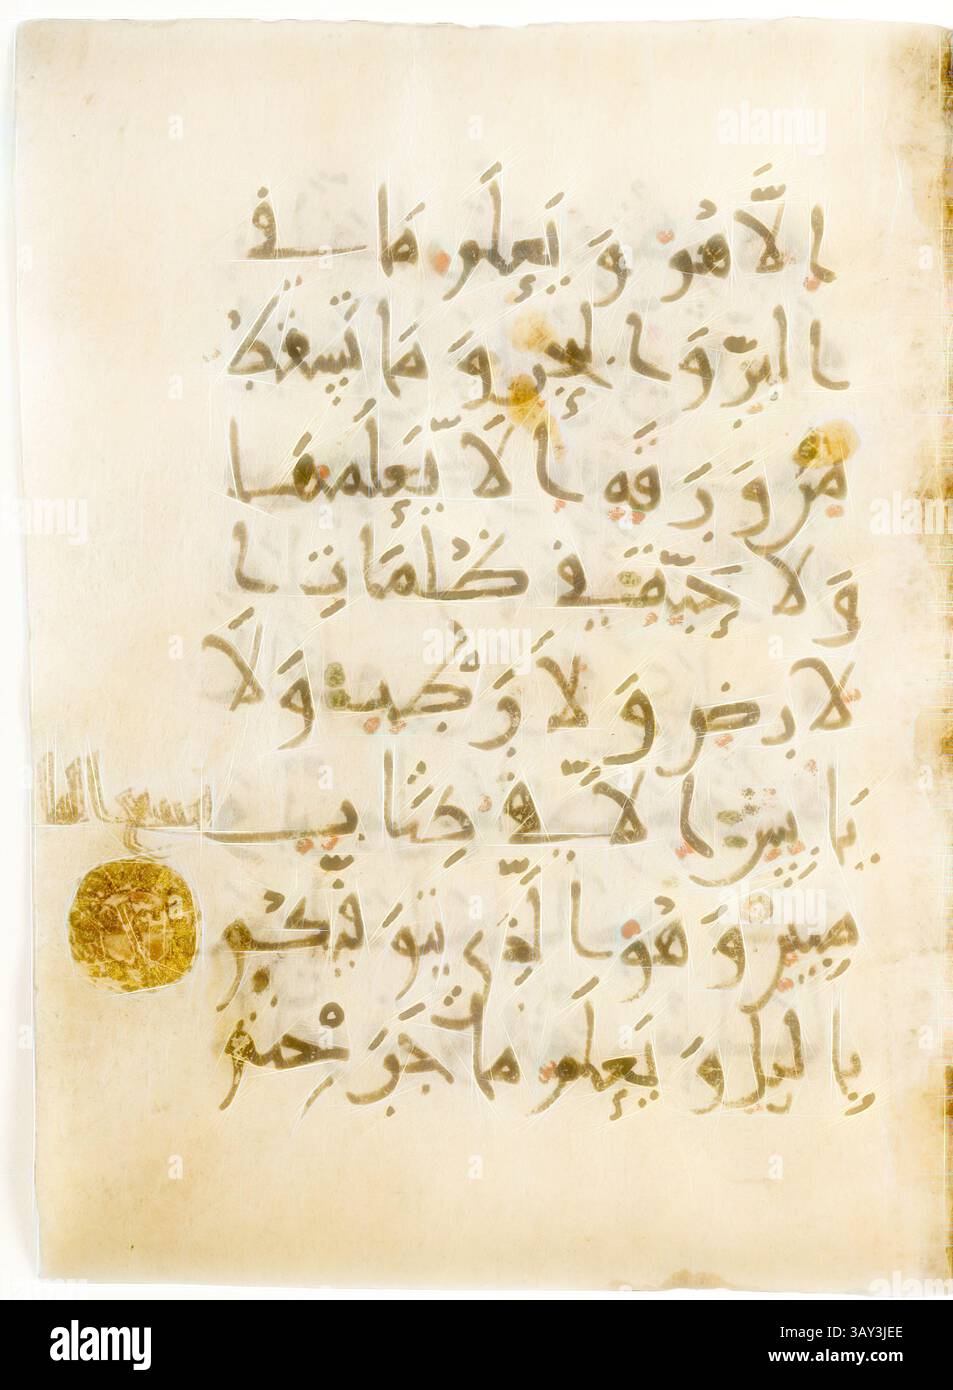 إِلَّا هُوَ وَيَعْلَمُ مَا فِي
الْبَرِّ وَالْبَحْرِ وَمَا تَسْقُطُ
مِنْ وَرَقَةٍ إِلَّا يَعْلَمُهَا
وَلَا حَبَّةٍ فِي ظُلُمَاتِ ا
لْأَرْضِ وَلَا رَطْبٍ وَلَا
يَابِسٍ إِلَّا فِي كِتَابٍ
مُبِينٍ وَهُوَ الَّذِي يَتَوَفَّيكُمْ
بِاللَّيْلِ وَيَعْلَمُ مَا جَرَحْتُمْ
alamy
Image ID: 3AY3JEE
www.alamy.com